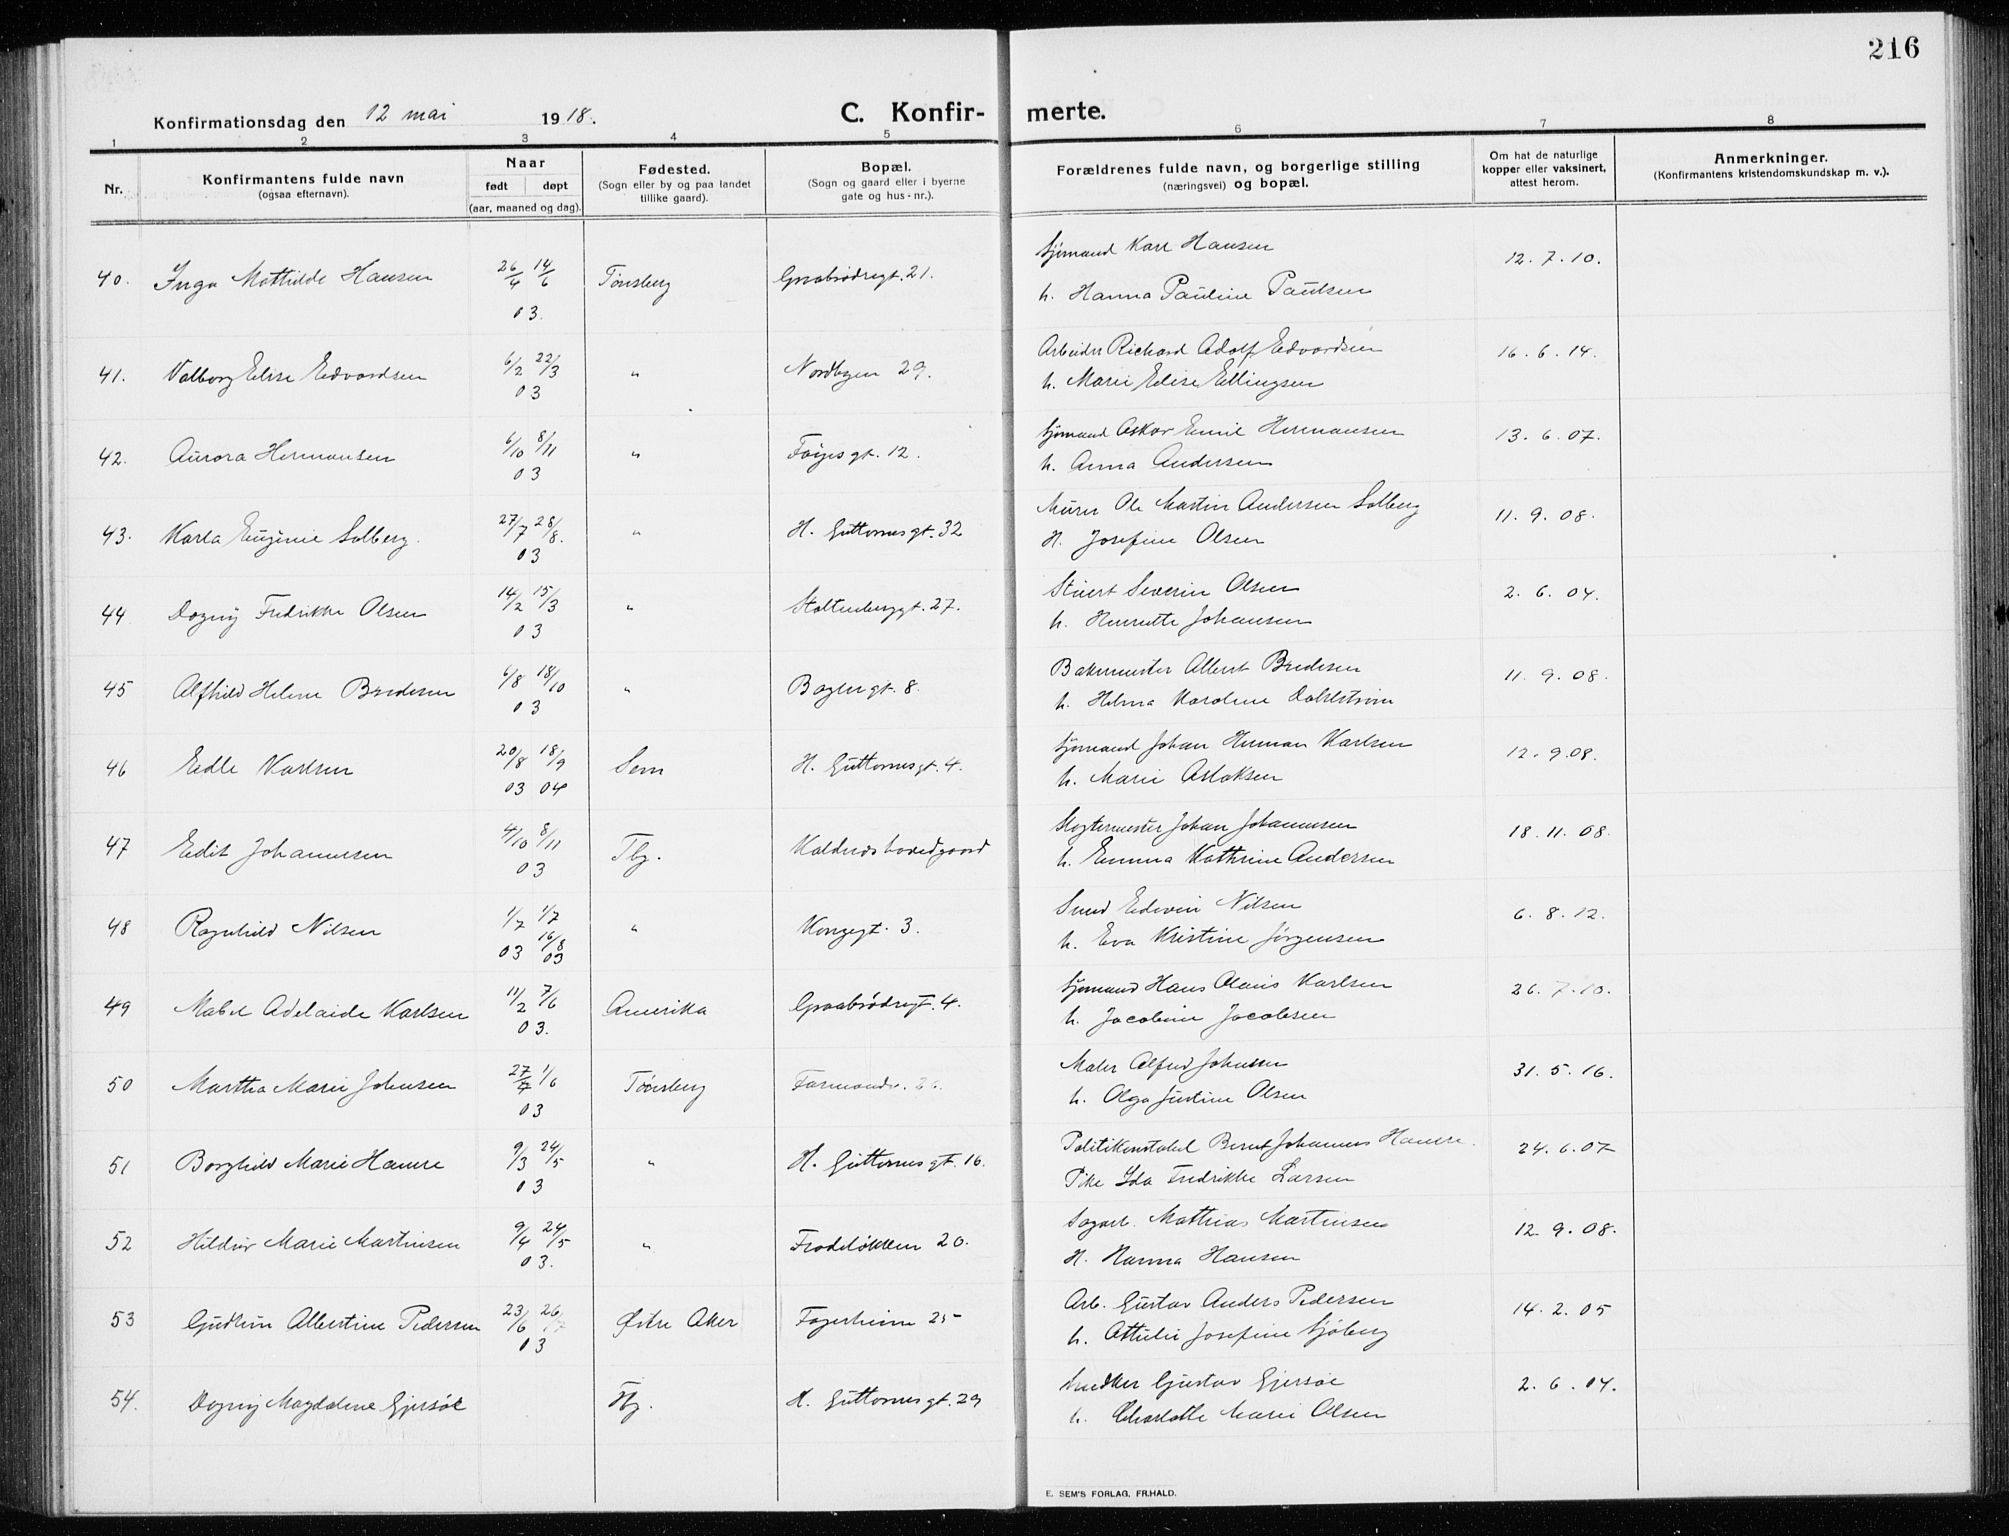 216
Konfirmationsdag den 12 mai 1918. C. Konfir- merte.
1 2 3 4 5 6 7 8
Nr. Konfirmantens fulde navn (ogsaa efternavn). Naar født døpt (aar, maaned og dag). Fødested. (Sogn eller by og paa landet tillike gaard). Bopæl. (Sogn og gaard eller i byerne gate og hus-nr.). Forældrenes fulde navn, og borgerlige stilling (næringsvei) og bopæl. Om hat de naturlige kopper eller vaksinert, attest herom. Anmerkninger. (Konfirmantens kristendomskundskap m. v.).
40. Inga Mathilde Hansen 26/4 14/6 03. Tønsberg Graabrødregt. 21. Sjømand Karl Hansen 12. 7. 10.
h. Hanna Pauline Paulsen
41. Valborg Elise Edvardsen 6/2 22/3 03 " Nordbyen 29. Arbeider Richard Adolf Edvardsen 16. 6. 14.
h. Marie Elise Ellingsen
42. Aurora Hermansen 6/10 8/11 03 " Føyns gt. 12. Sjømand Oskar Emil Hermansen 13. 6. 07.
h. Anna Andersen
43. Karla Euginie Solberg. 27/7 28/8. 03 " H. Guttormsgt. 32 Murer Ole Martin Andersen Solberg 11. 9. 08.
H. Josefine Olsen
44 Dagny Fredrikke Olsen 14/2 15/3 03 " Stoltenberggt. 27. Stuert Severin Olsen 2. 6. 04.
h. Henriette Johansen
45 Alfhild Helene Bredesen 6/8 18/10 03 " Baglergt. 8. Bakermester Albert Bredesen 11. 9. 08.
h. Helma Karoline Dahlstrøm
46 Edle Karlsen 20/8 18/9 03 04 Sem H. Guttormsgt. 4. Sjømand Johan Herman Karlsen 12. 9. 08.
h. Marie Aslaksen
47 Edit Johannesen 4/10 8/11 03 Tbg. Kaldnæs hovedgaard Slagtermester Johan Johannesen 18. 11. 08.
h. Emma Kathrine Andersen
48 Ragnhild Nilsen 1/7 1/7 03 16/8 03 " Kongegt. 3. Smed Edvin Nilsen 6. 8. 12.
h. Eva Kristine Jørgensen
49 Mabel Adelaide Karlsen 11/2 7/6 03. Amerika Graabrødregt. 4. Sjømand Hans Olaus Karlsen 26. 7. 10.
h. Jacobine Jacobsen
50 Martha Marie Johnsen 27/4 1/6 03 Tønsberg Farmandv. Maler Alfred Johnsen 31. 5. 16.
h. Olga Justine Olsen
51 Borghild Marie Hamre 9/3 24/5 03 " H. Guttormsgt. 16. Politikonstabel Bernt Johannes Hamre. 24. 6. 07
Pike Ida Fredrikke Larsen
52 Hildur Marie Martinsen 9/4 24/5 03. " Frodeløkken 20. Sagarb. Mathias Martinsen 12. 9. 08.
H. Hanna Hansen
53 Gudrun Albertine Pedersen 23/6 26/7 03 Østre Aker Fagerheim 25 Arb. Gustav Anders Pedersen 14. 2. 05
h. Attulie Josefine Sjøberg
54. Dagny Magdalene Gjersøe Tbg. H. Guttormsgt. 29 Snedker Gustav Gjersøe 2. 6. 04.
h. Charlotte Marie Olsen
E. SEM'S FORLAG, FR.HALD.